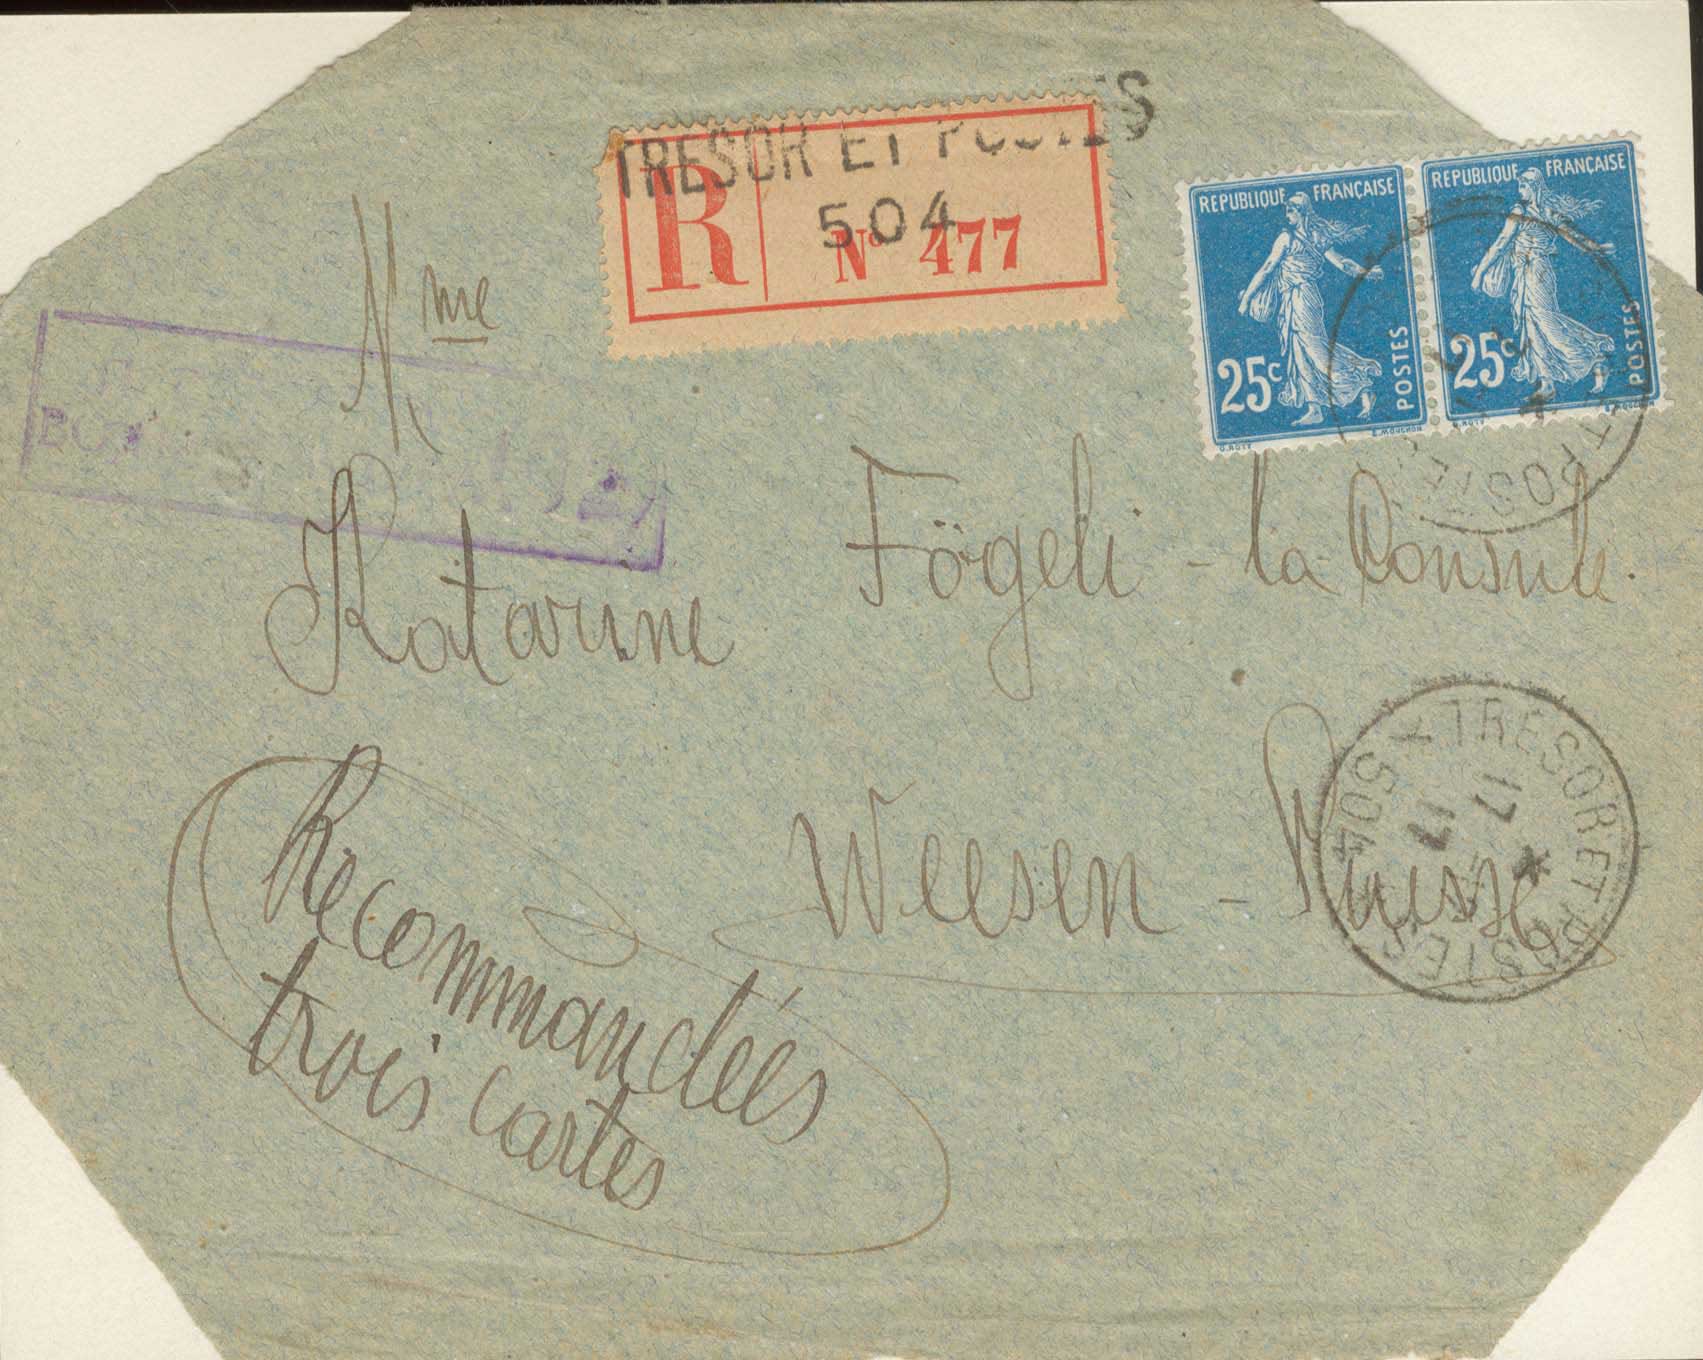 TRESOR ET POSTES
504
R Nº 477
REPUBLIQUE FRANÇAISE
25c POSTES
REPUBLIQUE FRANÇAISE
25c POSTES
Mme
Katarine Fögeli - la Consule.
Weesen - Suisse
Recommandées
trois cartes
TRESOR ET POSTES
TRESOR ET POSTES * 504 *
17
11